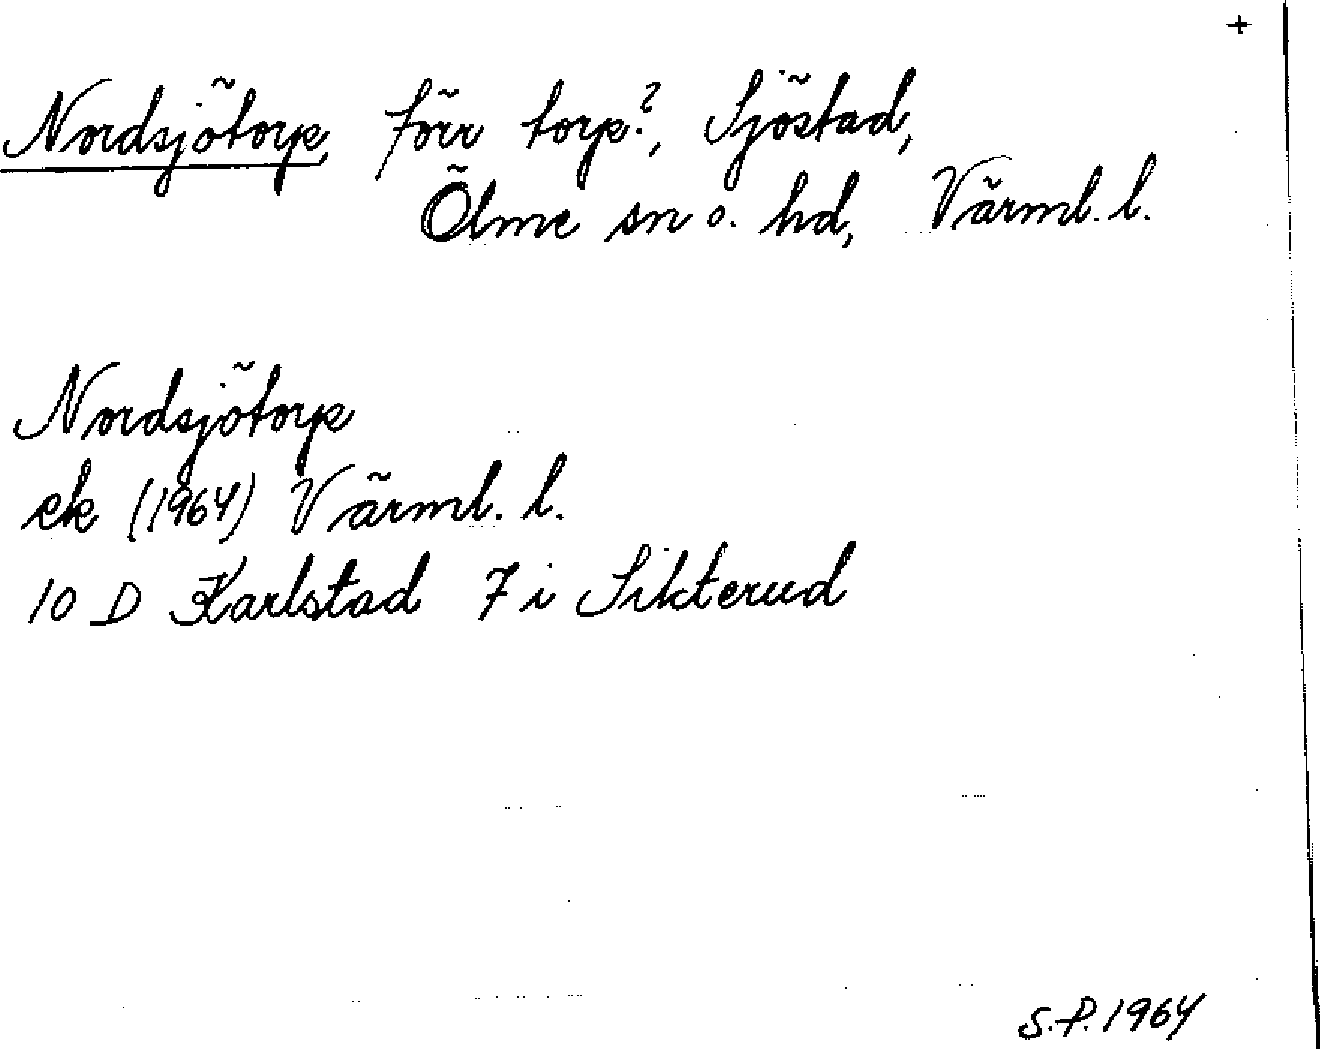 +
Nordsjötorp, förr torp?, Sjöstad,
Ölme sn o. hd, Värml. l.
Nordsjötorp
ek (1964) Värml. l.
10 D Karlstad 7 i Sikterud
S.P. 1964